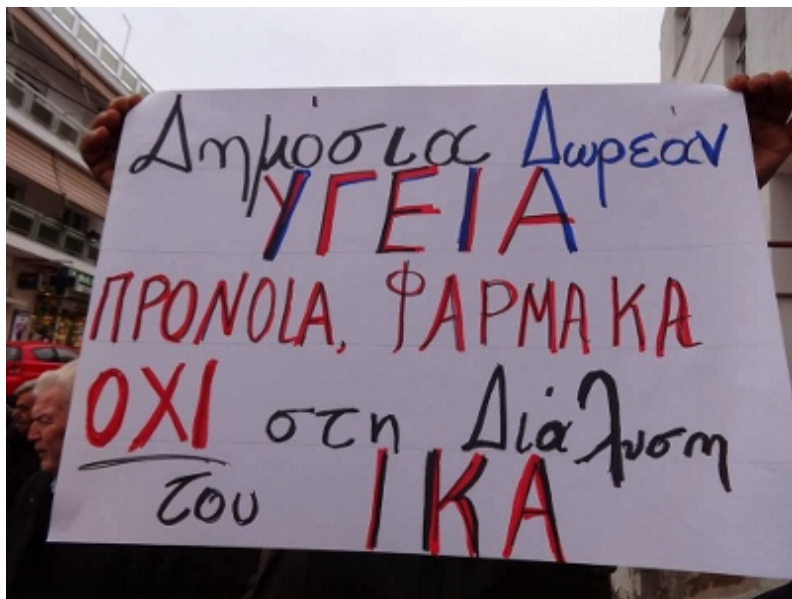 Δημόσια Δωρεάν
ΥΓΕΙΑ
ΠΡΟΝΟΙΑ, ΦΑΡΜΑΚΑ
ΟΧΙ στη Διάλυση
του ΙΚΑ